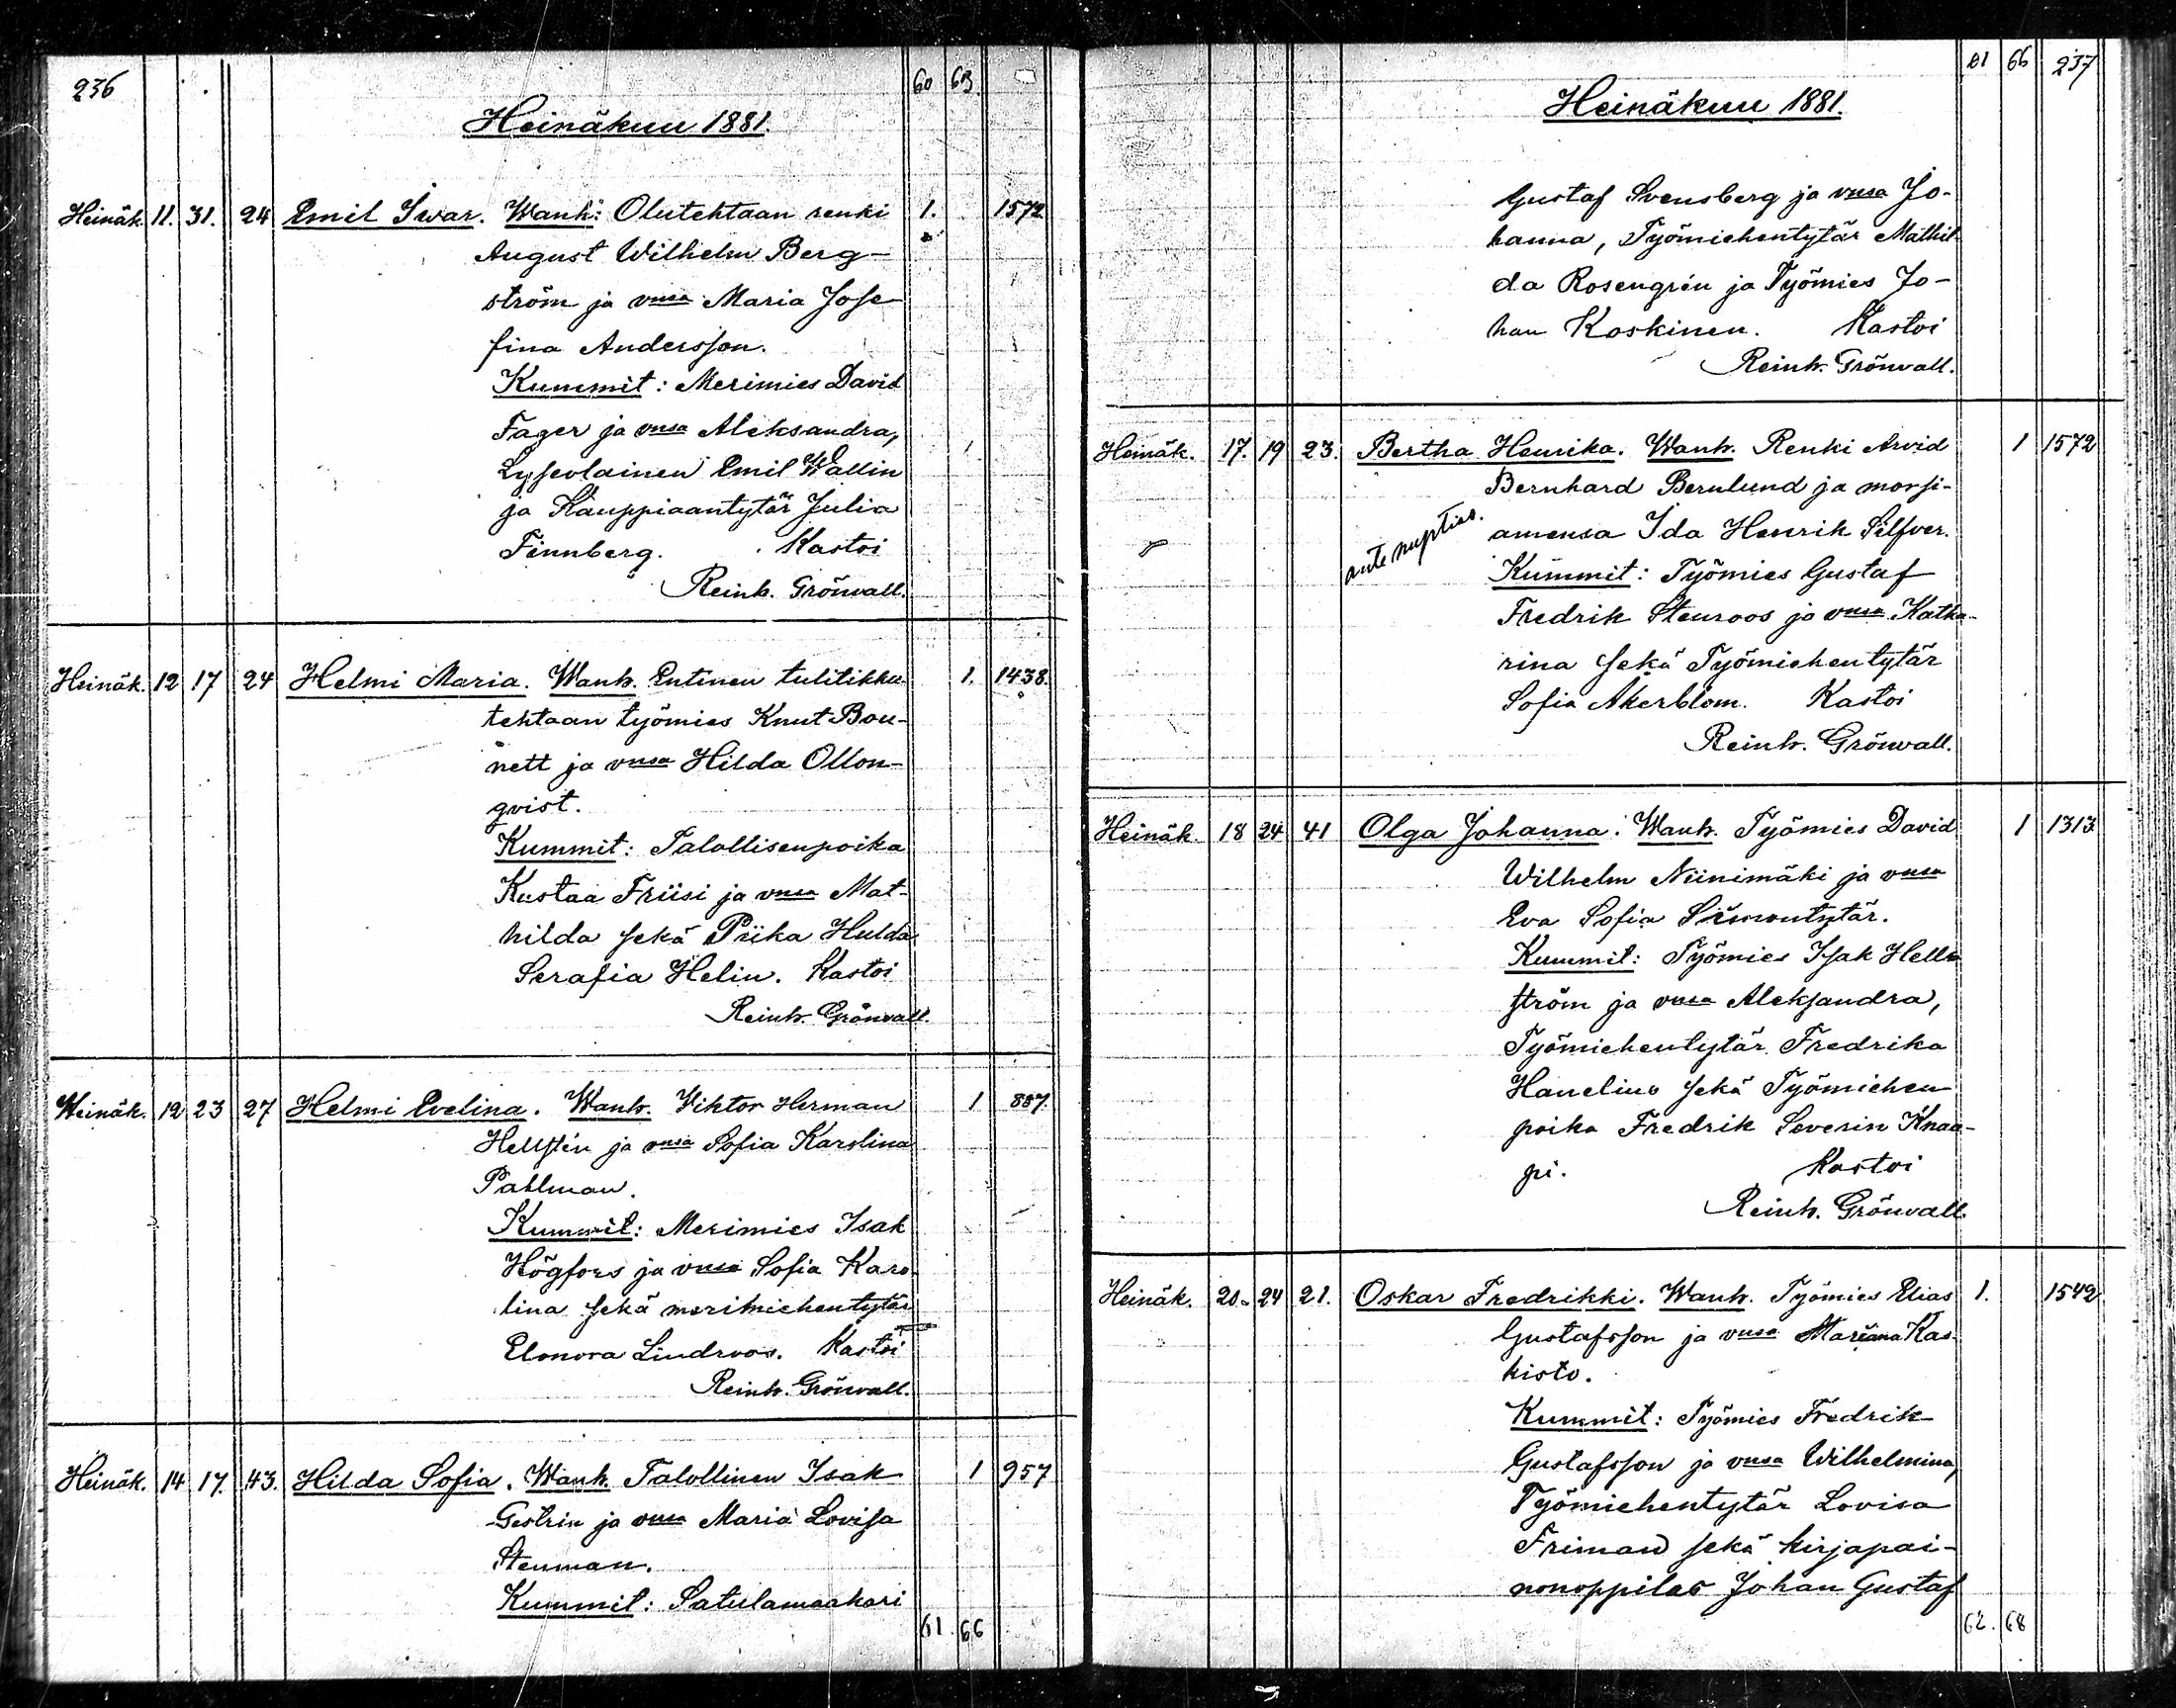 236
60 63
Heinäkuu 1881.
Heinäk. 11. 31. 24 Emil Iwar. Wanh: Olutehtaan renki 1. 1572
August Wilhelm Berg-
ström ja vmsa Maria Jose
fina Andersson.
Kummit: Merimies David
Fager ja vmsa Aleksandra,
Lyseolainen Emil Wallin
ja Kauppiaantytär Julia
Finnberg. Kastoi
Reinh. Grönvall.
Heinäk. 12 17 24 Helmi Maria. Wanh. Entinen tulitikku 1. 1438.
tehtaan työmies Knut Bou-
nett ja vmsa Hilda Ollon-
qvist.
Kummit: Talollisenpoika
Kustaa Friisi ja vmsa Mat-
hilda sekä Piika Hulda
Serafia Helin. Kastoi
Reinh. Grönvall.
Heinäk. 12 23 27 Helmi Evelina. Wanh. Viktor Herman 1 887
Hellstén ja vmsa Sofia Karolina
Pahlman.
Kummit: Merimies Isak
Högfors ja vmsa Sofia Karo-
lina sekä merimiehentytär
Elonora Lindroos. Kastoi
Reinh. Grönvall.
Heinäk. 14 17. 43. Hilda Sofia. Wanh. Talollinen Isak 1 957
Gestrin ja vmsa Maria Lovisa
Stenman.
Kummit: Satulamaakari
61. 66
61 66 237
Heinäkuu 1881.
Gustaf Svensberg ja vmsa Jo-
hanna, Työmiehentytär Mathil-
da Rosengrén ja Työmies Jo-
han Koskinen. Kastoi
Reinh. Grönvall.
Heinäk. 17. 19 23. Bertha Henrika. Wanh. Renki Arvid 1 1572
Bernhard Bernlund ja morsi-
amensa Ida Henrik Silfver.
ante nuptias.
Kummit: Työmies Gustaf
Fredrik Stenroos ja vmsa Katha-
rina sekä Työmiehentytär
Sofia Åkerblom. Kastoi
Reinh. Grönvall.
Heinäk. 18 24 41 Olga Johanna. Wanh. Työmies David 1 1313
Wilhelm Niinimäki ja vmsa
Eva Sofia Simontytär.
Kummit: Työmies Isak Hell-
ström ja vmsa Aleksandra,
Työmiehentytär Fredrika
Hanelius sekä Työmiehen
poika Fredrik Severin Knaa-
pi. Kastoi
Reinh. Grönvall.
Heinäk. 20. 24 21. Oskar Fredrikki. Wanh. Työmies Elias 1. 1542
Gustafsson ja vmsa Mariana Kas-
kisto.
Kummit: Työmies Fredrik
Gustafsson ja vmsa Wilhelmina,
Työmiehentytär Lovisa
Friman sekä kirjapai-
nonoppilas Johan Gustaf
62. 68